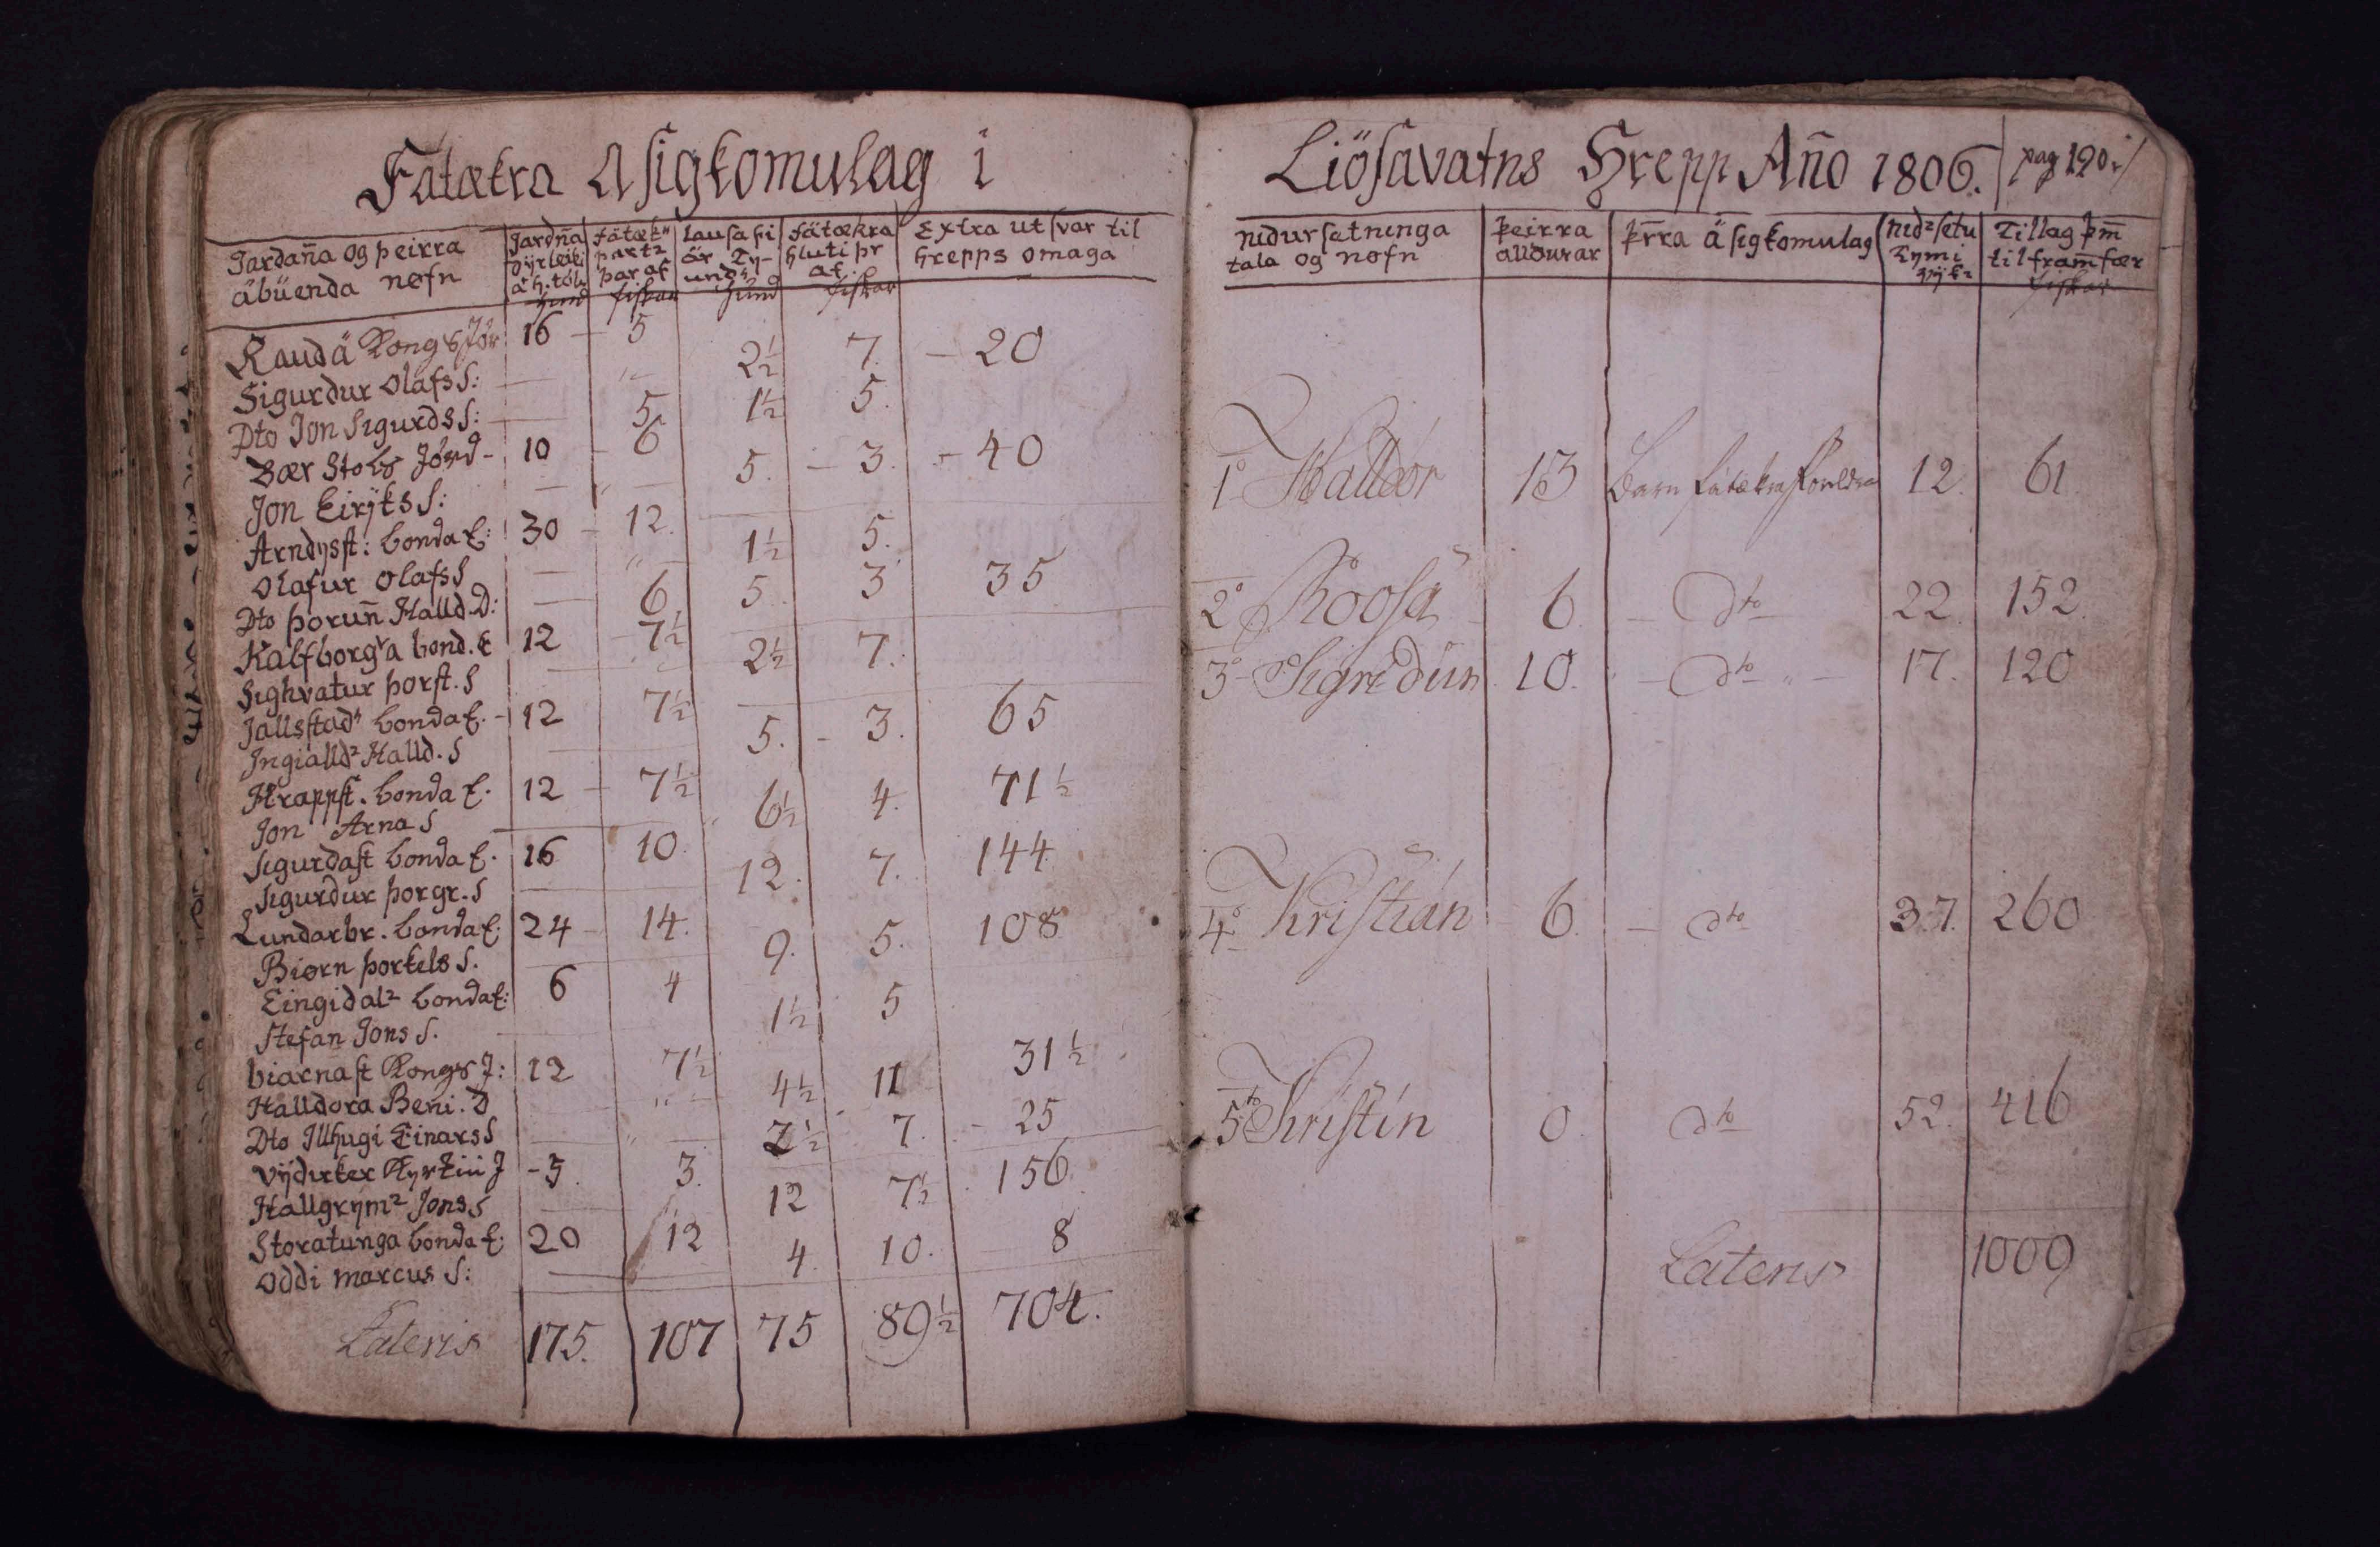 Fátækra Asigkomulag i
Jardan̄a og þeirra
ábüenda nöfn
Jardn̄a
dyrleiki
á h. töl
hund
fátæk
part
þar af
fiskar
lausa fi
ár Ty-
und
hund
fátækra
hluti þr
af
fiskar
Extra ut svar til
hrepps omaga
Raudá Kongs Jör 16 - 5
Sigurdur Olafs S: 2½ 7. - 20
Dto Jon Sigurds S: 5 1½ 5.
Bær Stols Jörd - 10 - 6
Jon Eiryks S: 5. - 3. - 40
Arndysst: bonda E: 30 - 12.
Olafur Olafs S 1½ 5.
Dto Þorun̄ Halld. D: 6. 5. 3 35
Kalfborgra bond. E 12 - 7½
Sighvatur Þorst. S 2½ 7.
Jallsstad bonda E. - 12 7½
Ingialld² Halld. S 5. - 3. 65
Hrappst. bonda E. 12 - 7½
Jon Arna S 6½ 4. 71½
Sigurdast bonda E. 16 10.
Sigurdur Þorgr. S 12. 7. 144
Lundarbr. bonda E: 24 - 14.
Biorn Þorkels S. 9. 5. 108
Eingidal² bonda E: 6 4
Stefan Jons S. 1½ 5
biarnast Kongs J: 12 7½
Halldora Beni. D 4½ 11 31½
Dto Illhugi Einars S 2½ 7. - 25
Vÿdirker Kyrkiu J - 5. 3.
Hallgrym² Jons S 12 7½ 156
Storatunga bonda E: 20 12
Oddi marcus S: 4. 10. 8
Lateris 175. 107 75 89½ 704.
Liösavatns Hrepp An̄o 1806. pag 190
nidursetninga
tala og nöfn
Þeirra
alldurar
Þr̄ra ásigkomulag
nid²setu
Tymi
vyk²
Tillag þm̄
til framfær
fiskar
1° Halldór 13 Barn fátækra Foreldra 12. 61.
2° Roosa 6. - Dto 22. 152.
3° Sigridur 10. - Dto - 17. 120
4° Kristián 6. - dto 37. 260
5to Kristín 0. dto 52. 416
Lateris 1009